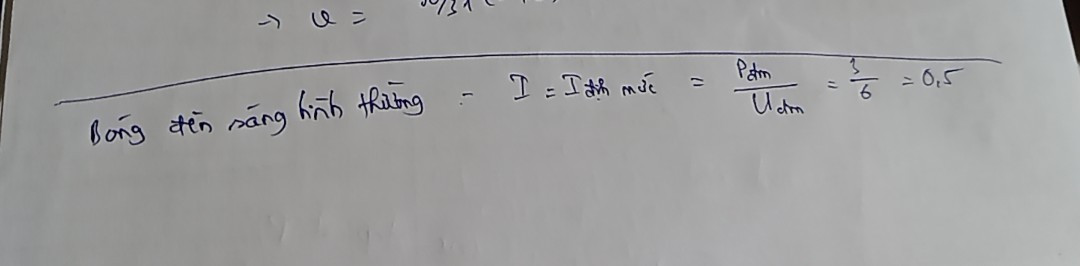 → v =
Bóng đèn sáng bình thường - I = I định mức = Pđm / Uđm = 3/6 = 0,5